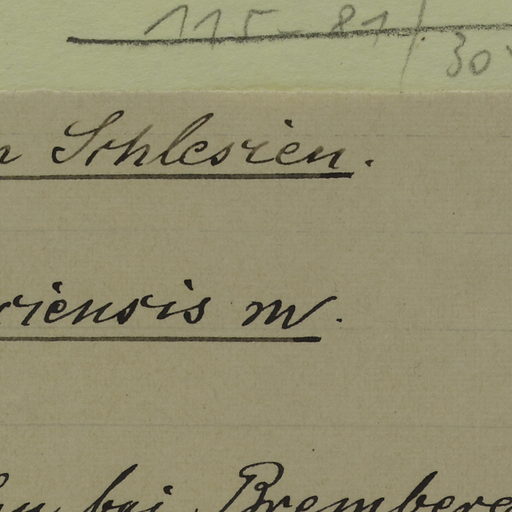 115-81/
30
n Schlesien.
riensis m.
bei Bremberg